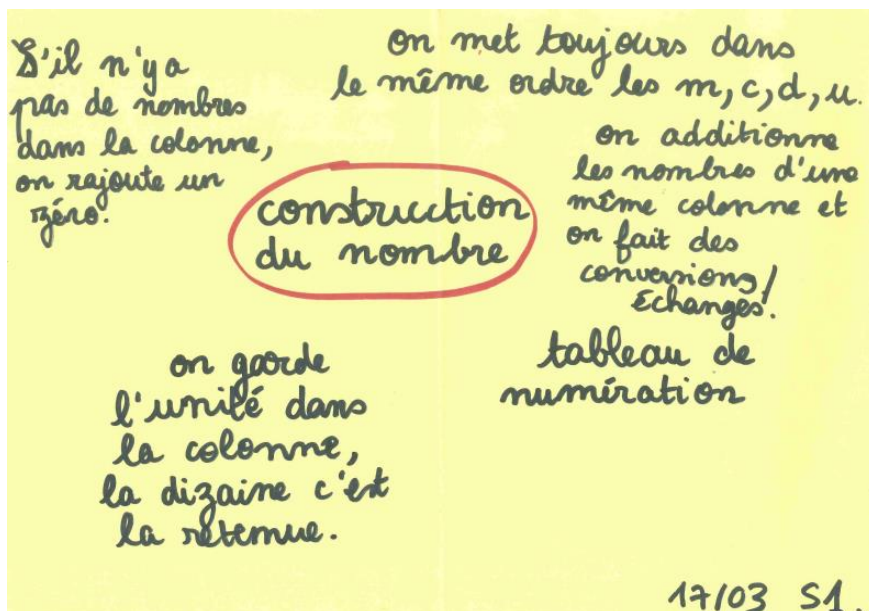 S'il n'y a
pas de nombres
dans la colonne,
on rajoute un
zéro.
on met toujours dans
le même ordre les m, c, d, u.
construction
du nombre
on additionne
les nombres d'une
même colonne et
on fait des
conversions/
échanges.
tableau de
numération
on garde
l'unité dans
la colonne,
la dizaine c'est
la retenue.
17/03 S1.